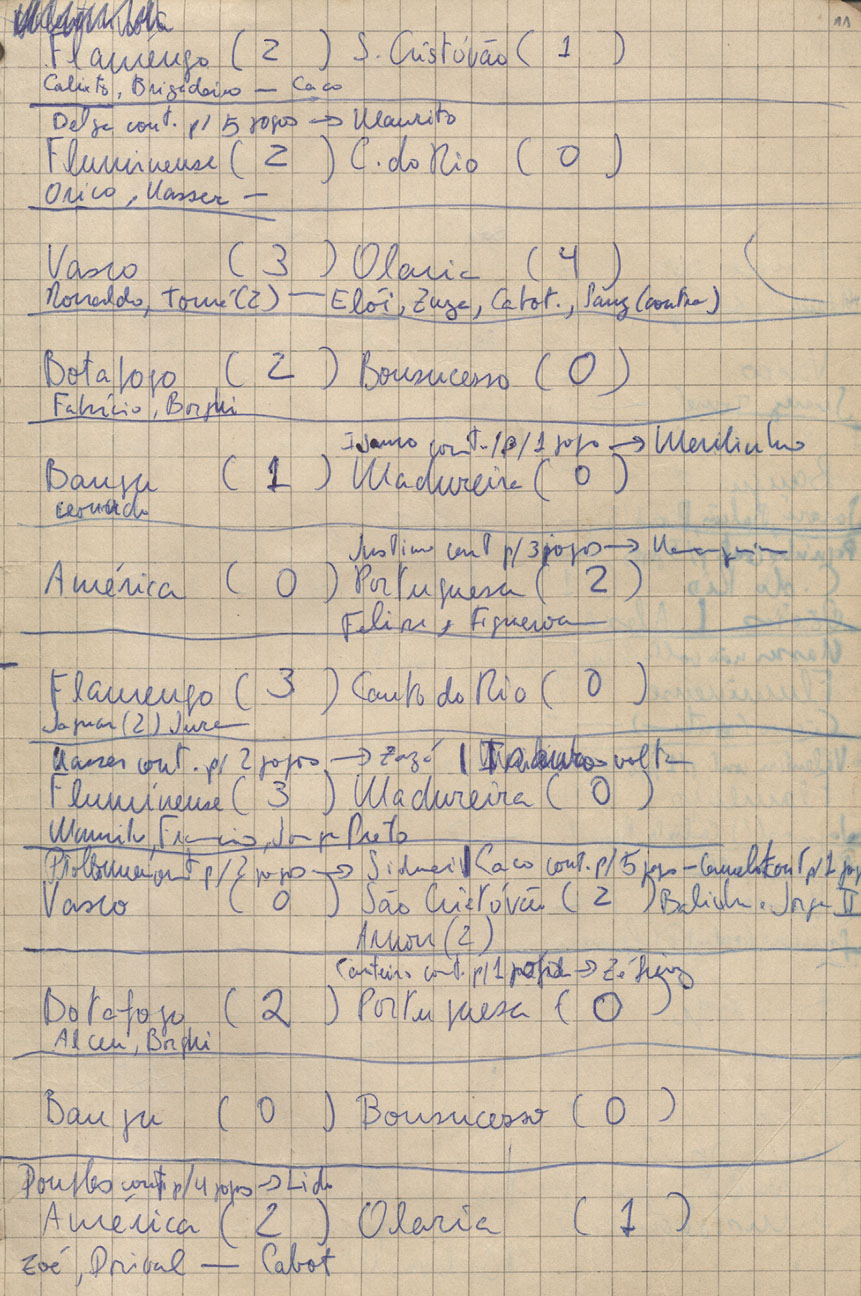 11
Flamengo ( 2 ) S. Cristóvão ( 1 )
Calixto, Brigadeiro — Caco
cont. p/ 5 jogos → Maurito
Fluminense ( 2 ) C. do Rio ( 0 )
Orico, Nasser —
Vasco ( 3 ) Olaria ( 4 )
Ronaldo, Tomé (2) — Elói, Zuza, Cabot., (contra)
Botafogo ( 2 ) Bonsucesso ( 0 )
Fabrício, Borghi
cont. p/ 1 jogo → Merilinho
Bangu ( 1 ) Madureira ( 0 )
Leonardo
Justino cont p/ 3 jogos →
América ( 0 ) Portuguesa ( 2 )
Felipe, Figueroa
Flamengo ( 3 ) Canto do Rio ( 0 )
Jaguar (2)
Nasser cont. p/ 2 jogos → Zezé | volta
Fluminense ( 3 ) Madureira ( 0 )
Jorge Preto
cont p/ 2 jogos → Sidnei | Caco cont. p/ 5 jogos – cont p/ 1 jogo
Vasco ( 0 ) São Cristóvão ( 2 ) Jorge II
(2)
cont. p/ 1 →
Botafogo ( 2 ) Portuguesa ( 0 )
Alceu, Borghi
Bangu ( 0 ) Bonsucesso ( 0 )
cont p/ 4 jogos → Lido
América ( 2 ) Olaria ( 1 )
Zoé, Dorival — Cabot